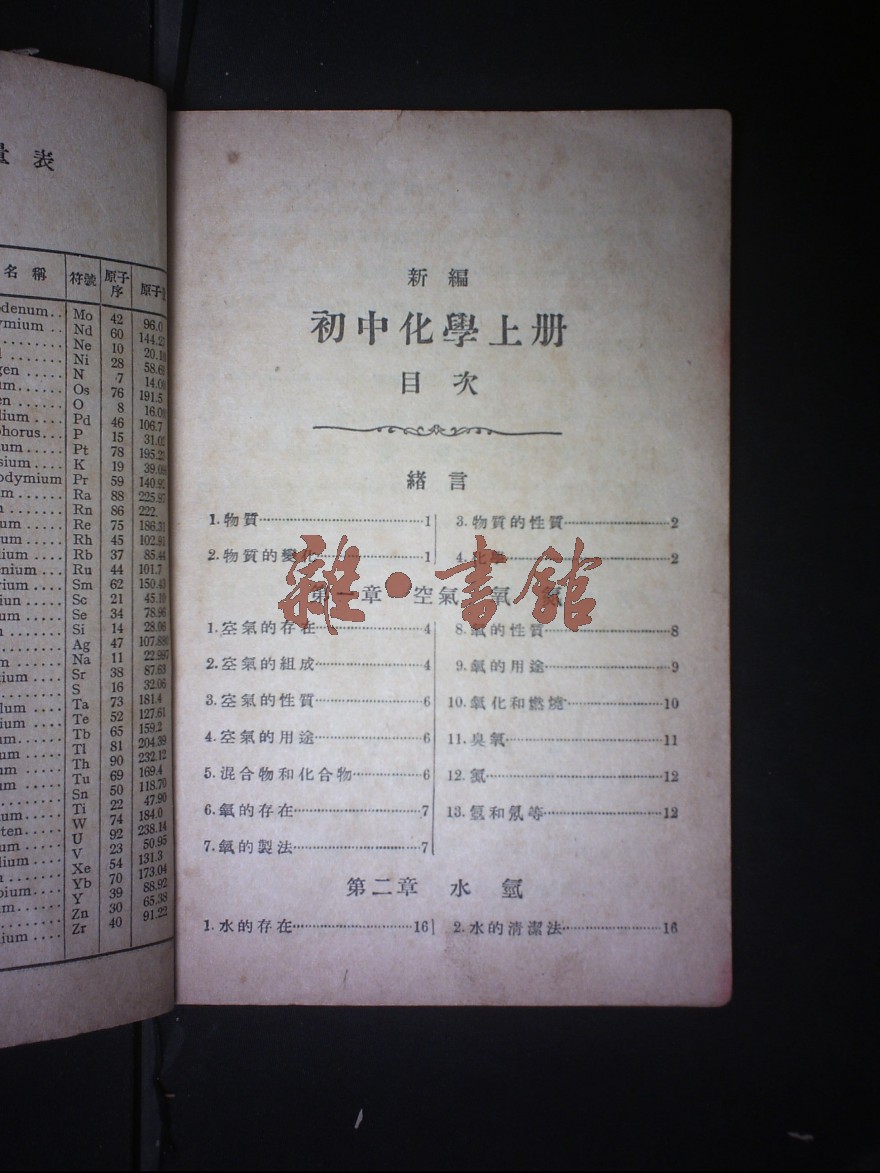 量表
名稱 符號 原子序 原子
denum.. Mo 42 96.0
ymium .. Nd 60 144.2
Ne 10 20.18
Ni 28 58.69
gen ..... N 7 14.00
um...... Os 76 191.5
en ...... O 8 16.00
lium .... Pd 46 106.7
phorus... P 15 31.02
num..... Pt 78 195.23
sium.... K 19 39.09
odymium Pr 59 140.92
m...... Ra 88 225.97
Rn 86 222.
um .... Re 75 186.31
um .... Rh 45 102.91
lium ... Rb 37 85.44
enium.. Ru 44 101.7
rium... Sm 62 150.43
Sc 21 45.10
Se 34 78.96
Si 14 28.06
Ag 47 107.880
Na 11 22.997
Sr 38 87.63
S 16 32.06
Ta 73 181.4
Te 52 127.61
Tb 65 159.2
Tl 81 204.39
Th 90 232.12
Tu 69 169.4
Sn 50 118.70
Ti 22 47.90
W 74 184.0
U 92 238.14
V 23 50.95
Xe 54 131.3
Yb 70 173.04
Y 39 88.92
Zn 30 65.38
Zr 40 91.22
新編
初中化學上册
目次
緒言
1.物質1
2.物質的變化1
3.物質的性質2
4.化學2
第一章 空氣 氧 氮
1.空氣的存在4
2.空氣的組成4
3.空氣的性質6
4.空氣的用途6
5.混合物和化合物6
6.氧的存在7
7.氧的製法7
8.氧的性質8
9.氧的用途9
10.氧化和燃燒10
11.臭氧11
12.氮12
13.氬和氖等12
第二章 水 氫
1.水的存在16
2.水的清潔法16
雜·書館